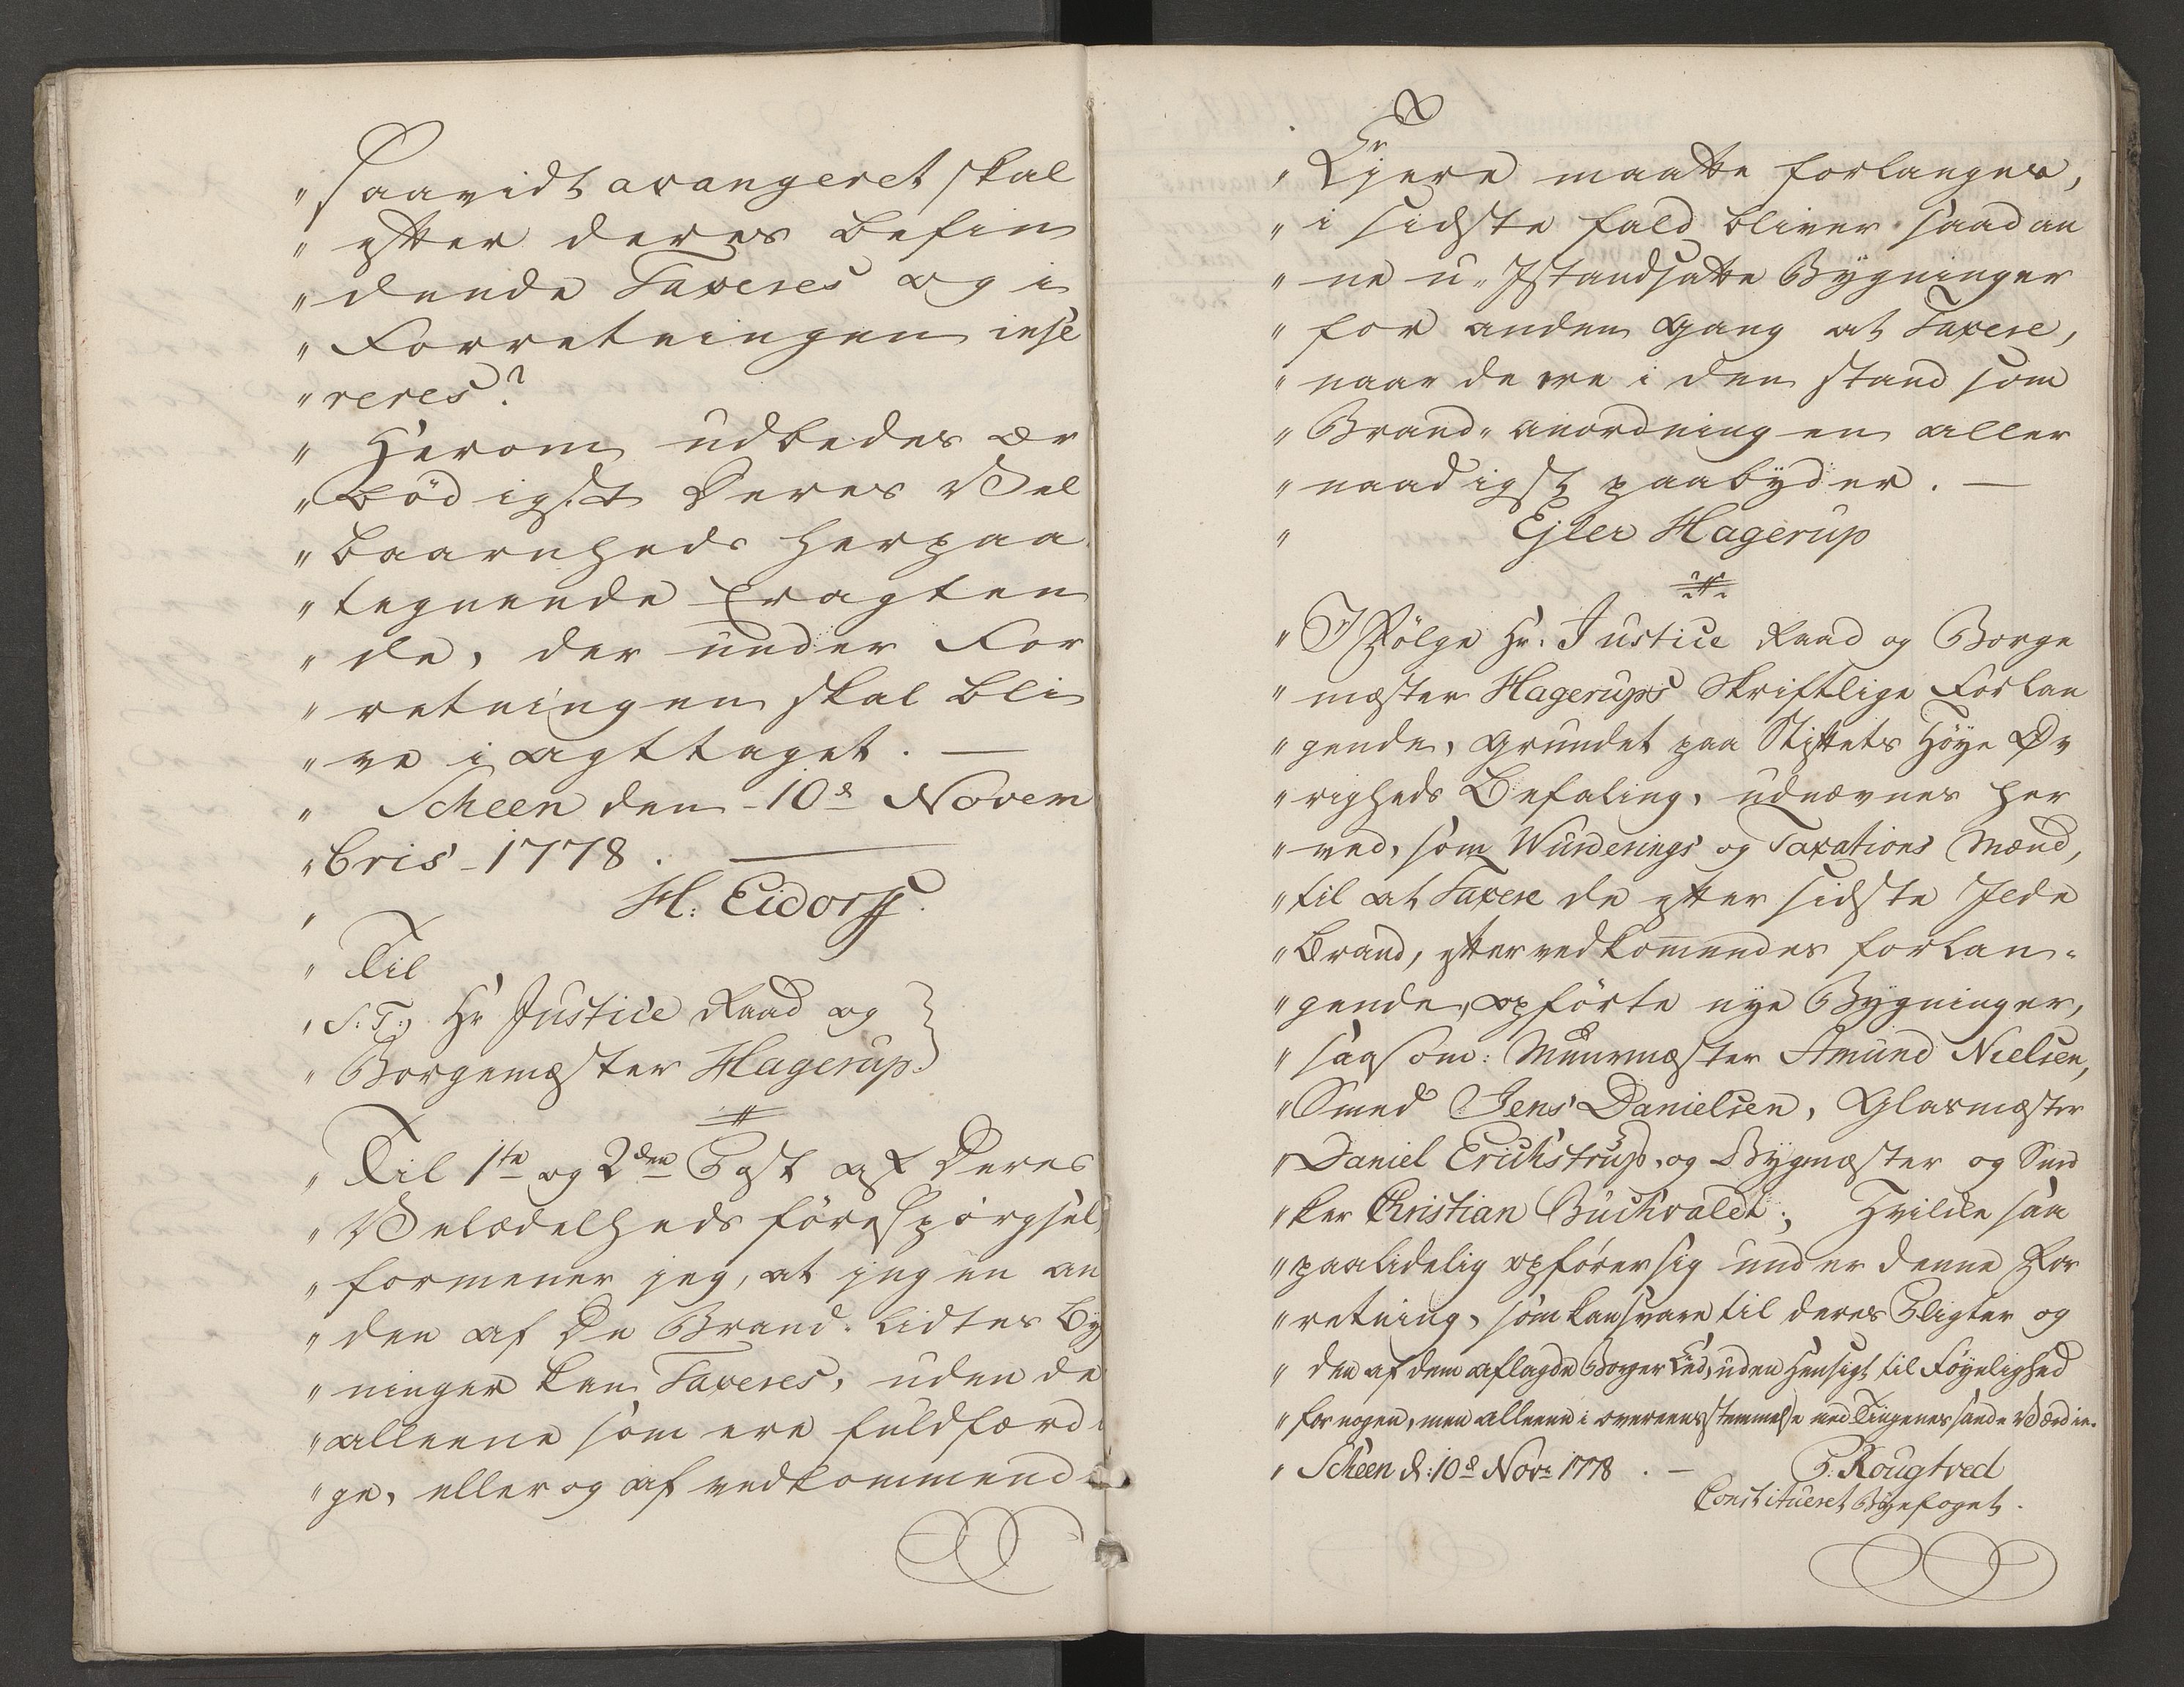 " saavidt arangeret skal
" efter deres befin
" dende Taxeres og i
" Forretningen inse
" reres?
" Herom udbedes ær
" bödigst Deres Vel
" baarnheds herpaa
" tegnende Eragten
" de, der under For
" retningen skal bli
" ve i agttaget. —
" Scheen den 10de Novem
" bris 1778. —
" H: Eidorff.
" Til
" S: T: Hr Justice Raad og
" Borgemester Hagerup.
" Til 1te og 2den Post af Deres
" Velædelheds föreSpörgsel,
" formener jeg, at ingen an
" den af De Brand-lidtes Byg
" ninger kan Taxeres, uden de
" alleene som ere fuldfærdi
" ge, eller og af vedkommende
" Ejere maatte forlanges,
" i sidste fald bliver saadan
" ne u-Istandsatte Bygninger
" for anden gang at Taxere,
" naar de ere i den stand som
" Brand-anordningen aller
" naadigst paabyder. —
" Ejler Hagerup
" I Fölge Hr. Justice Raad og Borge
" mester Hagerups Skriftlige Forlan
" gende, grundet paa Stiftets Höye Öv
" righeds Befaling, udnævnes her
" ved, som Wurderings og Taxations Mænd,
" til at Taxere de efter sidste Ilde
" Brand, efter vedkommendes forlan-
" gende, opförte nye Bygninger,
" saasom: Muurmester Amund Nielsen,
" Smed Jens Danielsen, Glasmester
" Daniel Erichstrup, og Bygmester og Sned
" ker Christian Buchvaldt; Hvilke saa
" paalidelig opförer sig under denne For
" retning, som kan svare til deres Pligter og
" den af dem aflagde Borger Eed, uden Hensigt til Föyelighed
" for nogen, men alleene i overeensstemmelse med Tingenes sande Værdie.
" Scheen d: 10de Novr 1778. — P. Rougtved
Constitueret Byefoget.